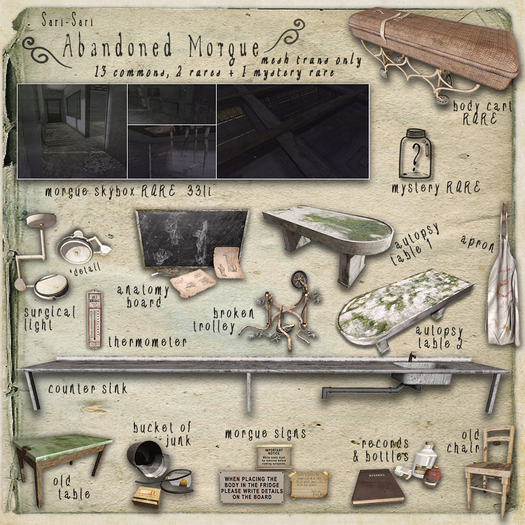 Sari-Sari
Abandoned Morgue
mesh trans only
13 commons, 2 rares + 1 mystery rare
body cart
RARE
?
mystery RARE
morgue skybox RARE 33li
autopsy
table 1
apron
'detail
surgical
light
anatomy
board
broken
trolley
thermometer
autopsy
table 2
counter sink
bucket of
junk
morgue signs
records
& bottles
old
chair
old
table
IMPORTANT
NOTICE
WHEN PLACING THE
BODY IN THE FRIDGE
PLEASE WRITE DETAILS
ON THE BOARD